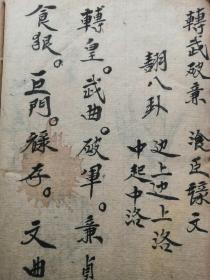 轉武破廉 飡巨祿文
翻八卦 边上边上洛
中起中洛
轉皇。武曲。破軍。廉貞
食狼。巨門。祿存。文曲